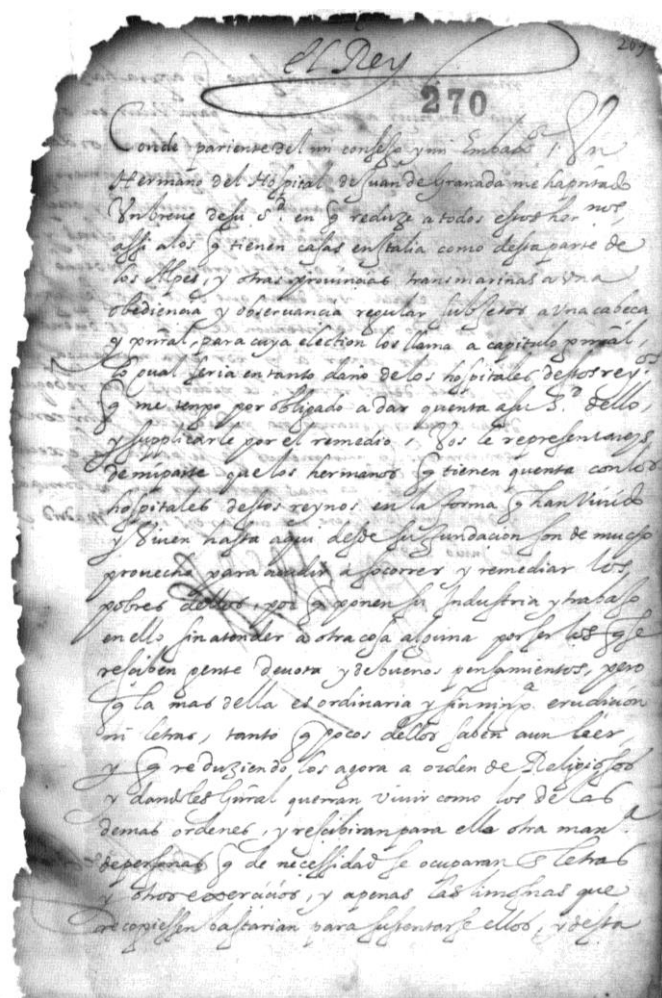 el Rey
269
270
Conde pariente del mi consejo y mi Embaxor. Un
Hermano del Hospital de Juan de Granada me ha pntado
Un breve de su Sd. en q reduze a todos estos hernos,
assi a los q tienen casas en Italia como desta parte de
los Alpes, y otras provincias transmarinas a una
obediencia y observancia regular subjetos a una cabeça
y gnral, para cuya election los llama a capitulo gnral,
lo qual seria en tanto daño de los hospitales destos reyos.
q me tengo por obligado a dar quenta a su Sd. dello,
y supplicarle por el remedio, Vos le representareys
de mi parte que los hermanos q tienen quenta con los
hospitales destos reynos en la forma q han vivido
y viven hasta aqui desde su fundacion son de mucho
provecho para acudir a socorrer y remediar los
pobres dellos, por q ponen su industria y trabajo
en ello sin atender a otra cosa alguina por ser los q se
resciben gente devota y de buenos pensamientos, pero
q la mas della es ordinaria y sin ninga. erudicion
ni letras, tanto q pocos dellos saben aun leer,
y q reduziendo los agora a orden de Religiosos
y dandoles Gnral querran vivir como los de las
demas ordenes, y rescibiran para ello otra mana.
de personas q de necessidad se ocuparan letras
y otros exercicios, y apenas las limosnas que
recogiessen bastarian para sustentarse ellos, y desta